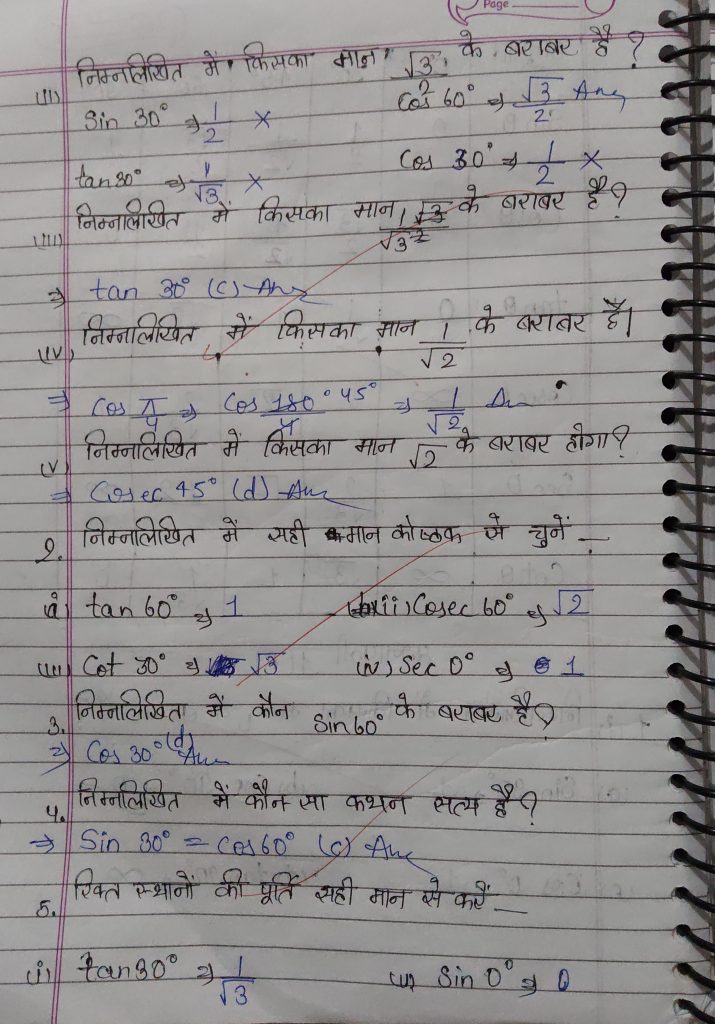 Page
(ii) निम्नलिखित में किसका मान √3/2 के बराबर है ?
Sin 30° ⇒ 1/2 × Cos 60° ⇒ √3/2 Ans
tan30° ⇒ 1/√3 × Cos 30° ⇒ 1/2 ×
(iii) निम्नलिखित में किसका मान 1/√3 के बराबर है ?
⇒ tan 30° (c) Ans
(iv) निम्नलिखित में किसका मान 1/√2 के बराबर है।
⇒ Cos π/4 ⇒ Cos 180°/4 45° ⇒ 1/√2 Ans
(v) निम्नलिखित में किसका मान √2 के बराबर होगा ?
⇒ Cosec 45° (d) Ans
2. निम्नलिखित में सही मान कोष्ठक से चुनें —
(i) tan 60° ⇒ 1 (ii) Cosec 60° ⇒ √2
(iii) Cot 30° ⇒ √3 (iv) Sec 0° ⇒ 1
3. निम्नलिखिता में कौन Sin60° के बराबर है ?
⇒ Cos 30° (d) Ans
4. निम्नलिखित में कौन सा कथन सत्य है ?
⇒ Sin 30° = Cos 60° (c) Ans
5. रिक्त स्थानों की पूर्ति सही मान से करें —
(i) tan30° ⇒ 1/√3 (ii) Sin 0° ⇒ 0